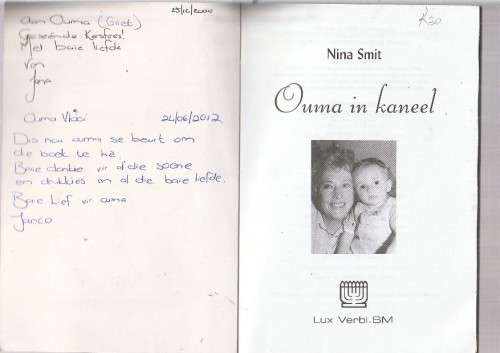 25/12/2000
Aan Ouma (Griet)
Geseënde Kersfees!
Met baie liefde
Van
Jana
Ouma Vlooi 24/06/2012
Dis nou ouma se beurt om
die boek te hê
Baie dankie vir al die soene
en drukkies en al die baie liefde.
Baie lief vir ouma
Janco
R20
Nina Smit
Ouma in kaneel
Lux Verbi.BM